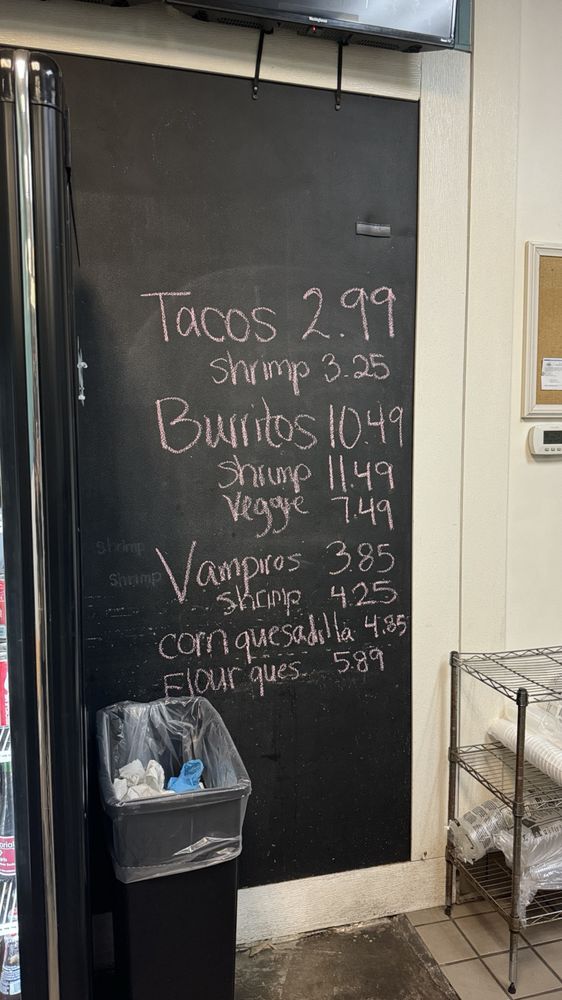 Westinghouse
Tacos 2.99
shrimp 3.25
Burritos 10.49
shrimp 11.49
veggie 7.49
shrimp
shrimp
Vampiros 3.85
shrimp 4.25
corn quesadilla 4.85
Flour ques. 5.89